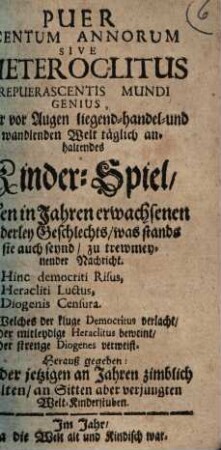 PUER
CENTUM ANNORUM
SIVE
HETEROCLITUS
REPUERASCENTIS MUNDI
GENIUS,
vor Augen liegend-handel-und
wandlenden Welt täglich an-
haltendes
Kinder-Spiel/
in Jahren erwachsenen
Geschlechts/ was stands
sie auch seynd/ zu trewmey-
nender Nachricht.
Hinc democriti Risus,
Heracliti Luctus,
Diogenis Censura.
Welches der kluge Democritus verlacht/
der mitleydige Heraclitus beweint/
der strenge Diogenes verweist.
Herauß gegeben:
der jetzigen an Jahren zimblich
alten/ an Sitten aber verjungten
Welt-Kinderstuben.
Im Jahr/
die Welt alt und Kindisch war.